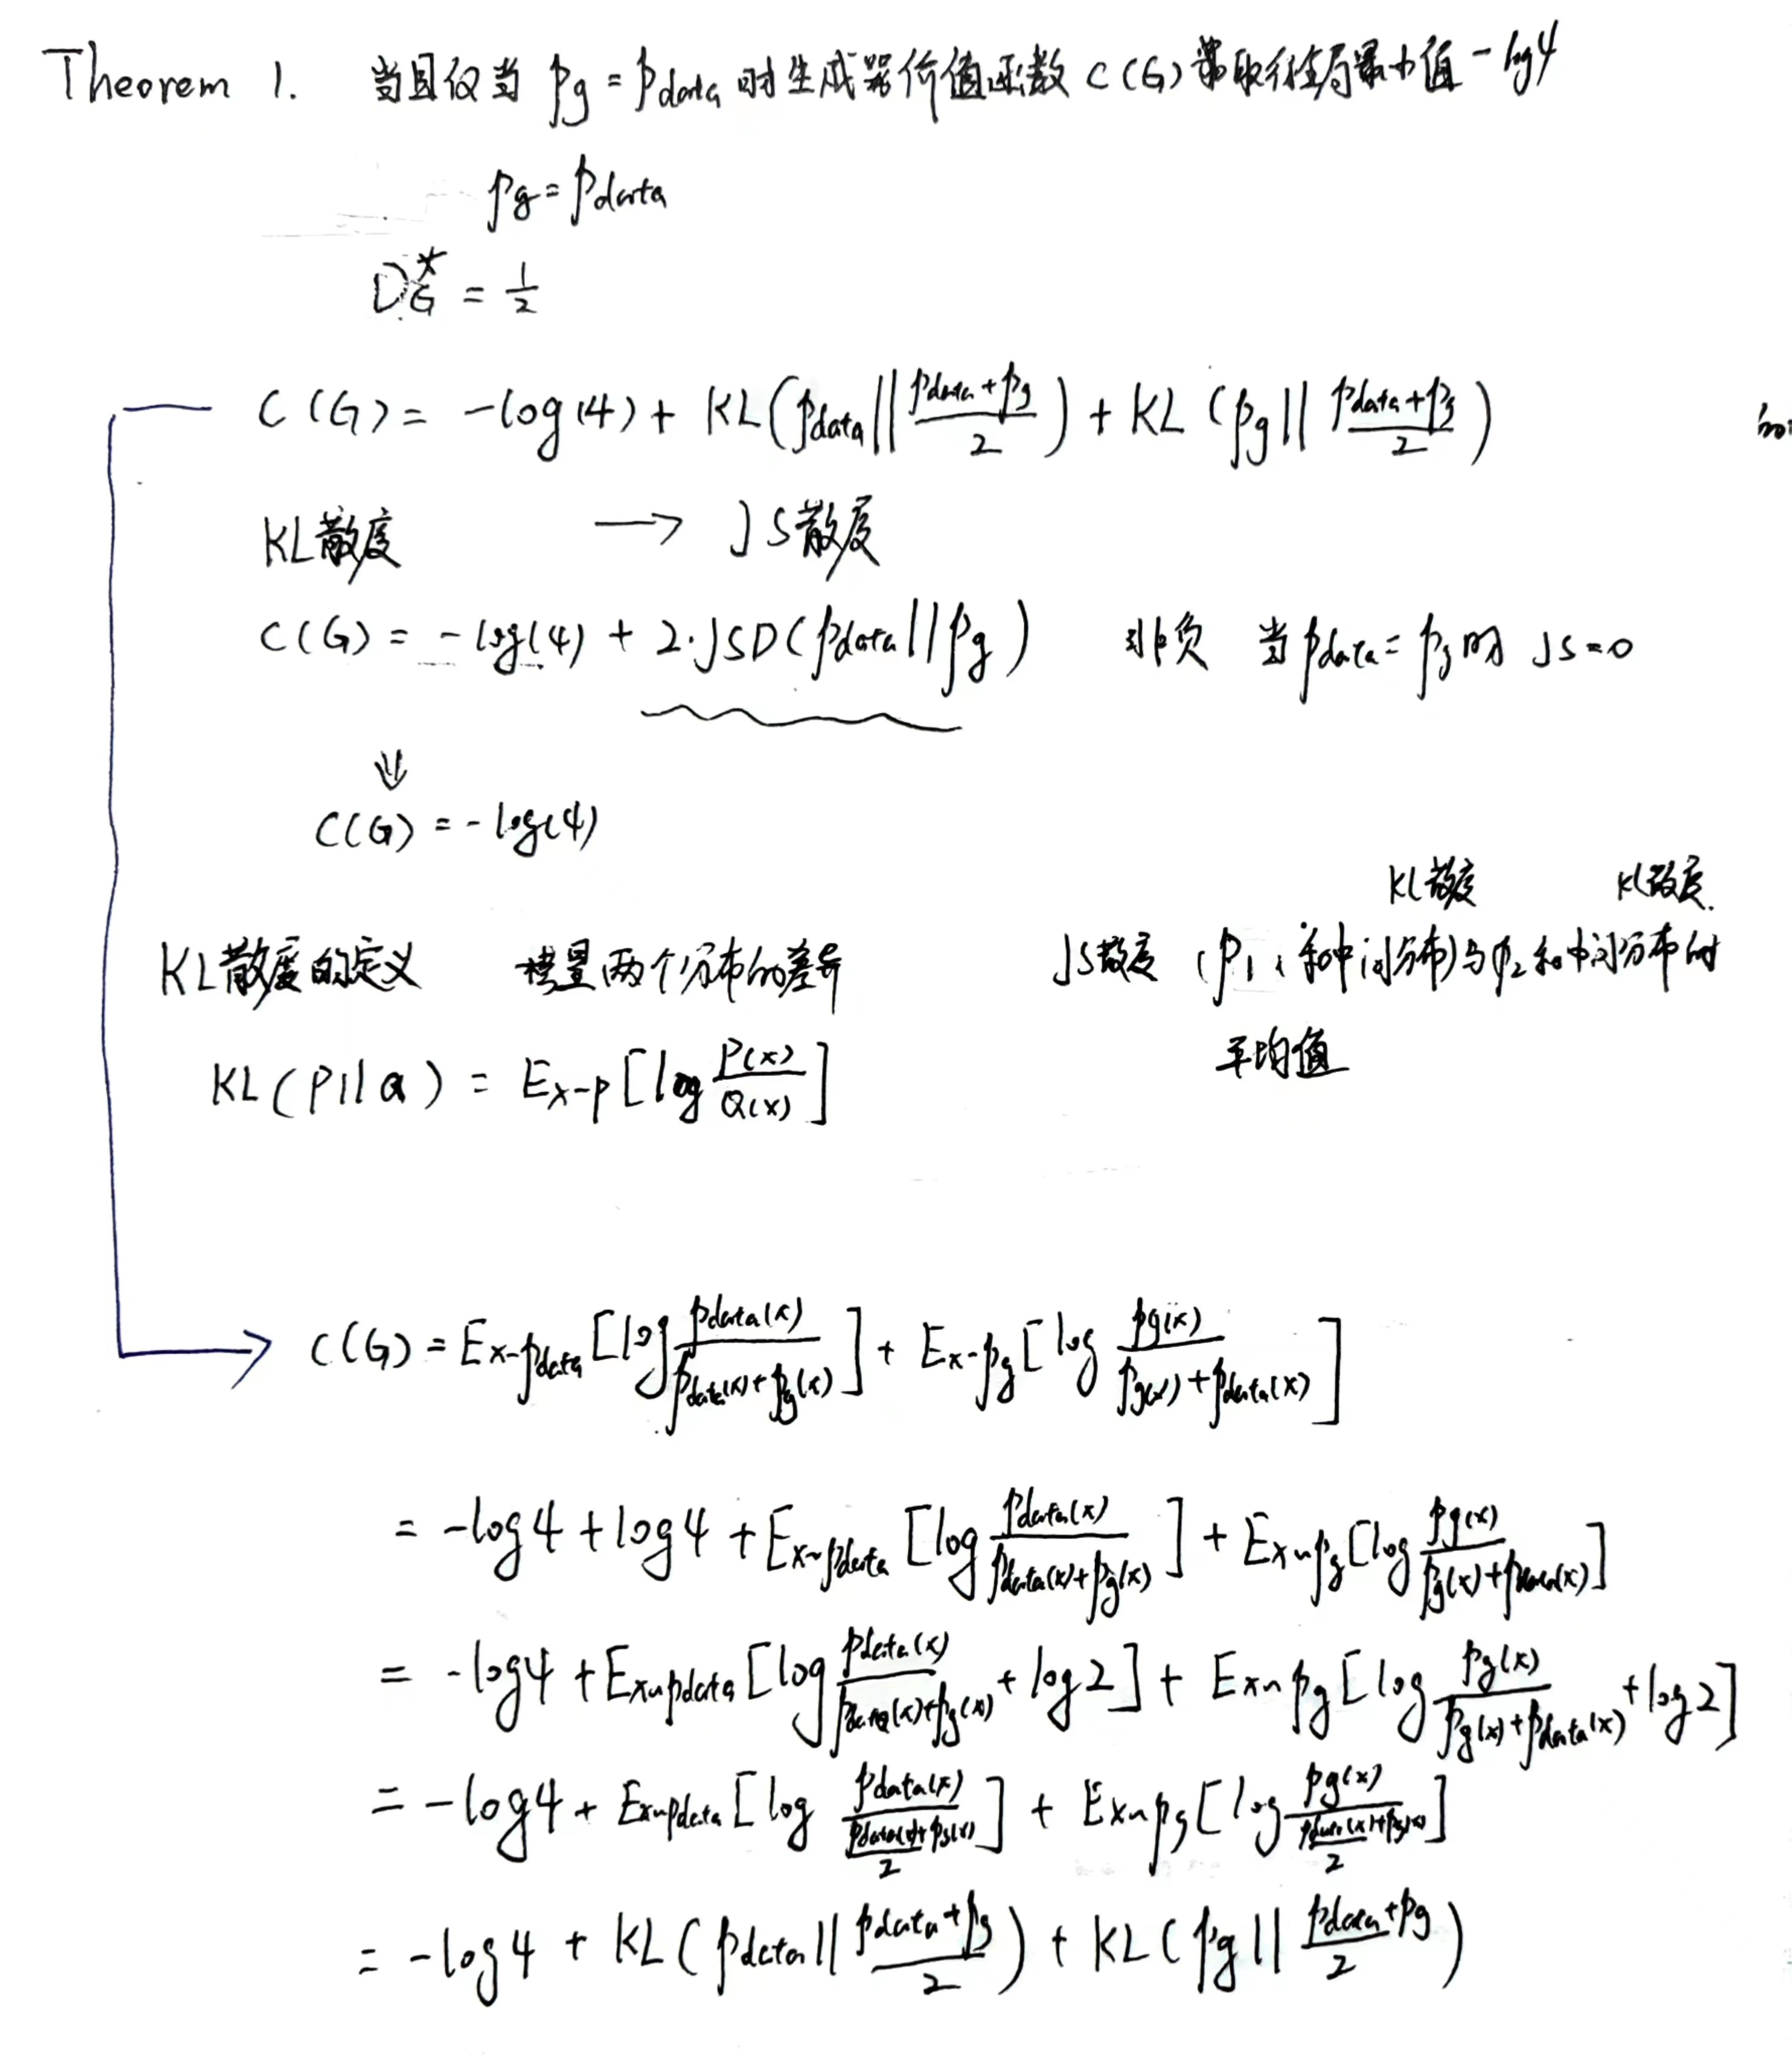 Theorem 1. 当且仅当 pg = pdata 时生成器价值函数 C(G) 取得全局最小值 -log4
pg = pdata
D*G = 1/2
C(G) = -log(4) + KL(pdata || (pdata + pg)/2) + KL(pg || (pdata + pg)/2)
KL散度 → JS散度
C(G) = -log(4) + 2·JSD(pdata || pg) 非负 当 pdata = pg 时 JS=0
⇓
C(G) = -log(4)
KL散度 KL散度
KL散度的定义 两个分布的差异
JS散度 (p1, 和中间分布)与p2和中间分布的
平均值
KL(P||Q) = Ex~p[log P(x)/Q(x)]
C(G) = Ex~pdata[log pdata(x)/(pdata(x)+pg(x))] + Ex~pg[log pg(x)/(pg(x)+pdata(x))]
= -log4 + log4 + Ex~pdata[log pdata(x)/(pdata(x)+pg(x))] + Ex~pg[log pg(x)/(pg(x)+pdata(x))]
= -log4 + Ex~pdata[log pdata(x)/(pdata(x)+pg(x)) + log2] + Ex~pg[log pg(x)/(pg(x)+pdata(x)) + log2]
= -log4 + Ex~pdata[log pdata(x)/((pdata(x)+pg(x))/2)] + Ex~pg[log pg(x)/((pdata(x)+pg(x))/2)]
= -log4 + KL(pdata || (pdata+pg)/2) + KL(pg || (pdata+pg)/2)